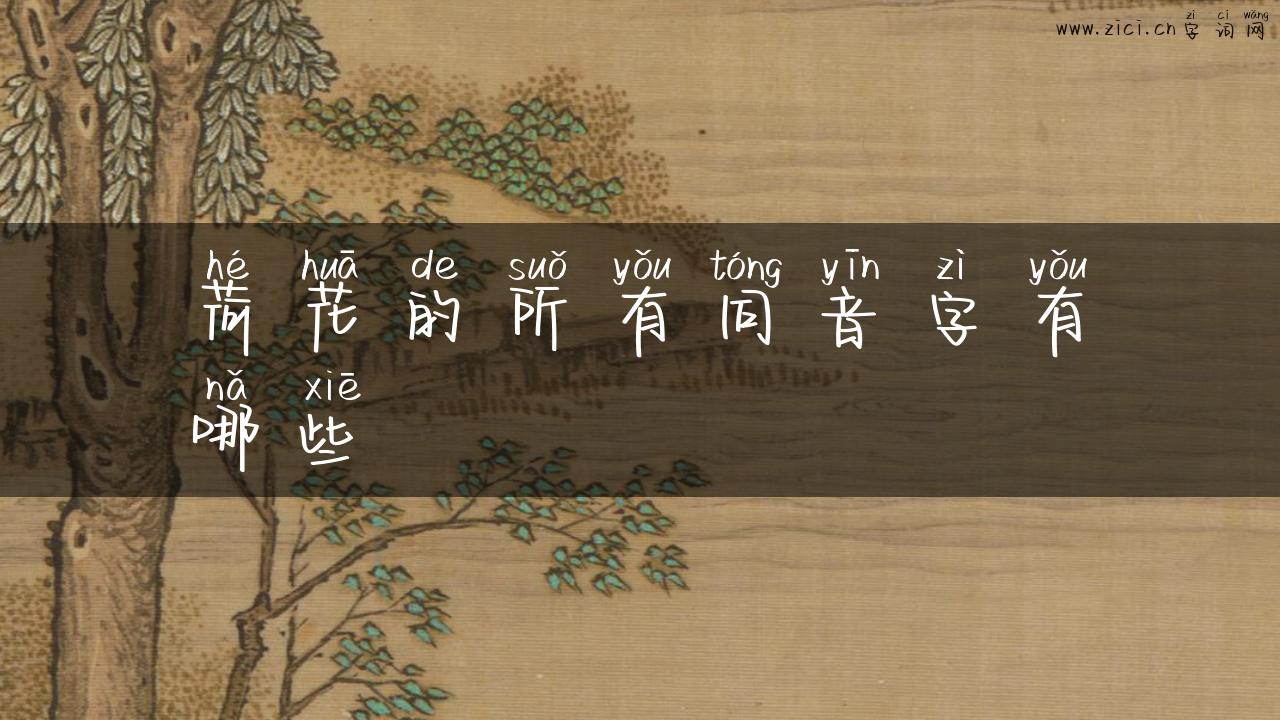 zì cí wǎng
www.zici.cn 字词网
hé huā de suǒ yǒu tóng yīn zì yǒu
荷花的所有同音字有
nǎ xiē
哪些